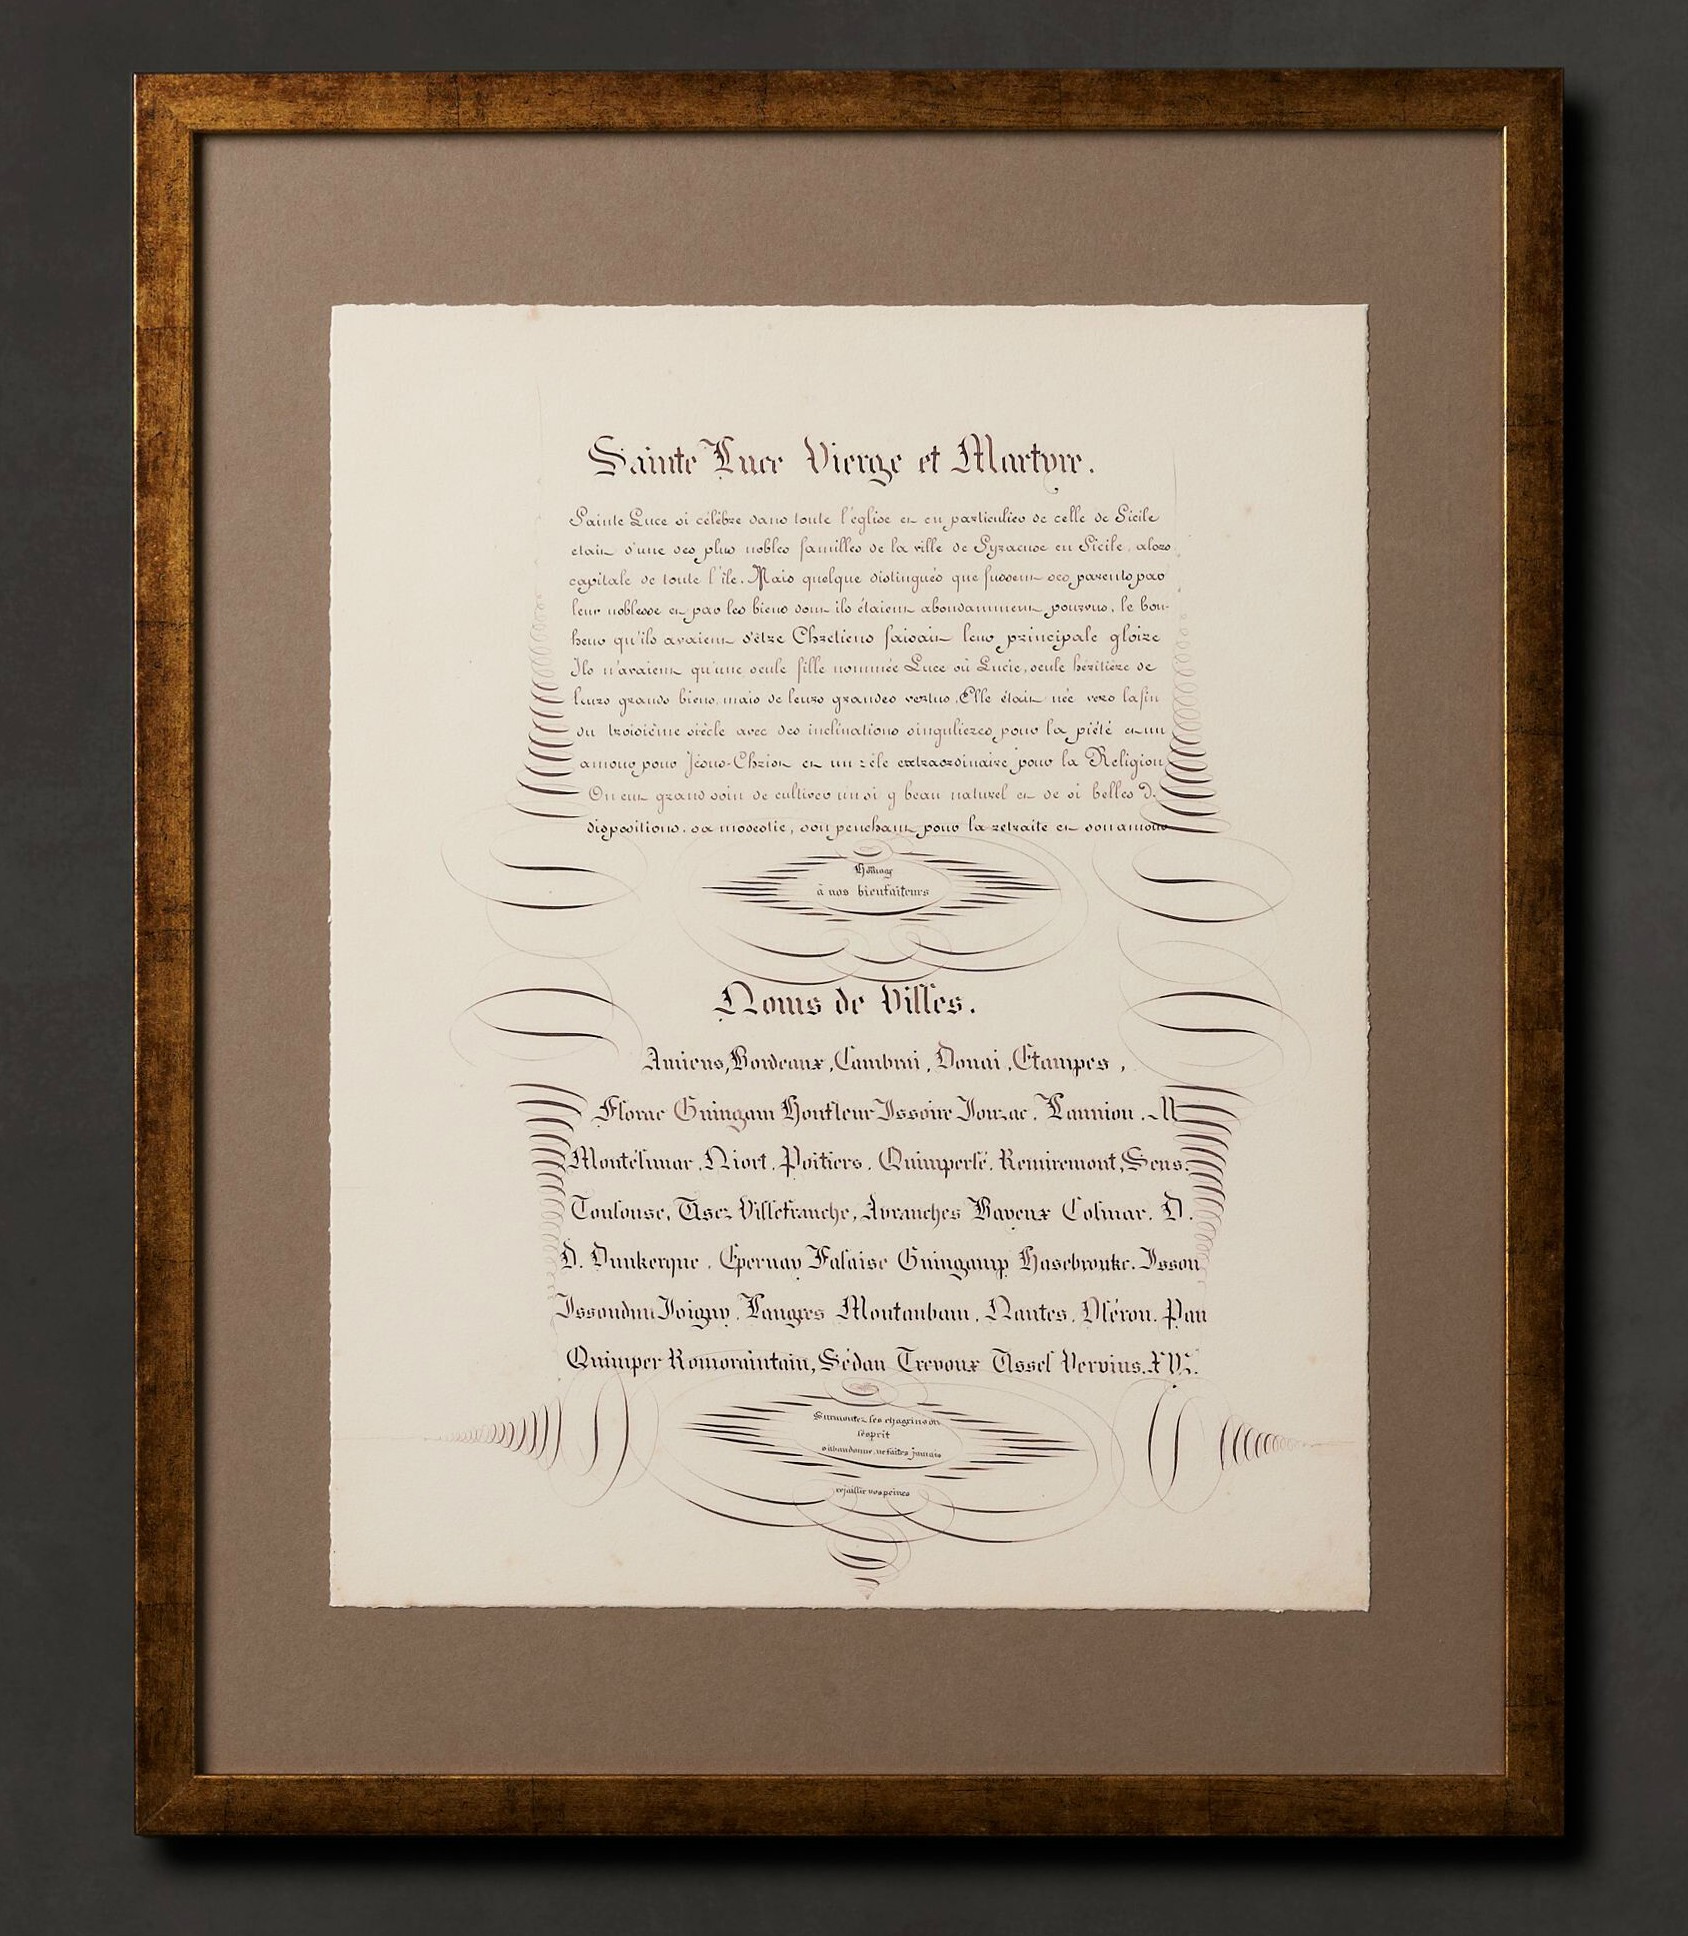 Sainte Luce Vierge et Martyre.
Sainte Luce si célèbre dans toute l'église et en particulier de celle de Sicile
etait d'une des plus nobles familles de la ville de Syracuse en Sicile, alors
capitale de toute l'île. Mais quelque distingués que fussent ses parents par
leur noblesse et par les biens dont ils étaient abondamment pourvus, le bon-
heur qu'ils avaient d'être Chrétiens faisait leur principale gloire
Ils n'avaient qu'une seule fille nommée Luce où Lucie, seule héritière de
leurs grands biens, mais de leurs grandes vertus. Elle était née vers la fin
du troisième siècle avec des inclinations singulières pour la piété et un
amour pour Jésus-Christ et un zéle extraordinaire pour la Religion
On eut grand soin de cultiver un si g beau naturel et de si belles d.
dispositions. sa modestie, son penchant pour la retraite et son amour
Homage
à nos bienfaiteurs
Noms de Villes.
Amiens, Bordeaux, Cambrai, Douai, Etampes,
Florac Guingam Honfleur Issoire Jonzac. Lannion. M
Montélimar. Niort. Poitiers. Quimperlé. Remiremont, Sens.
Toulouse, Usez Villefranche, Avranches Bayeux Colmar. D.
D. Dunkerque. Epernay Falaise Guingamp Hasebrouke. Isson
Issoudun Joigny. Langres Montaubam. Nantes. Oléron. Pau
Quimper Romoraintain, Sédan Trevoux Ussel Vervins.
Surmontez les chagrins où
l'esprit
s'abandonne, ne faites jamais
rejaillir vos peines